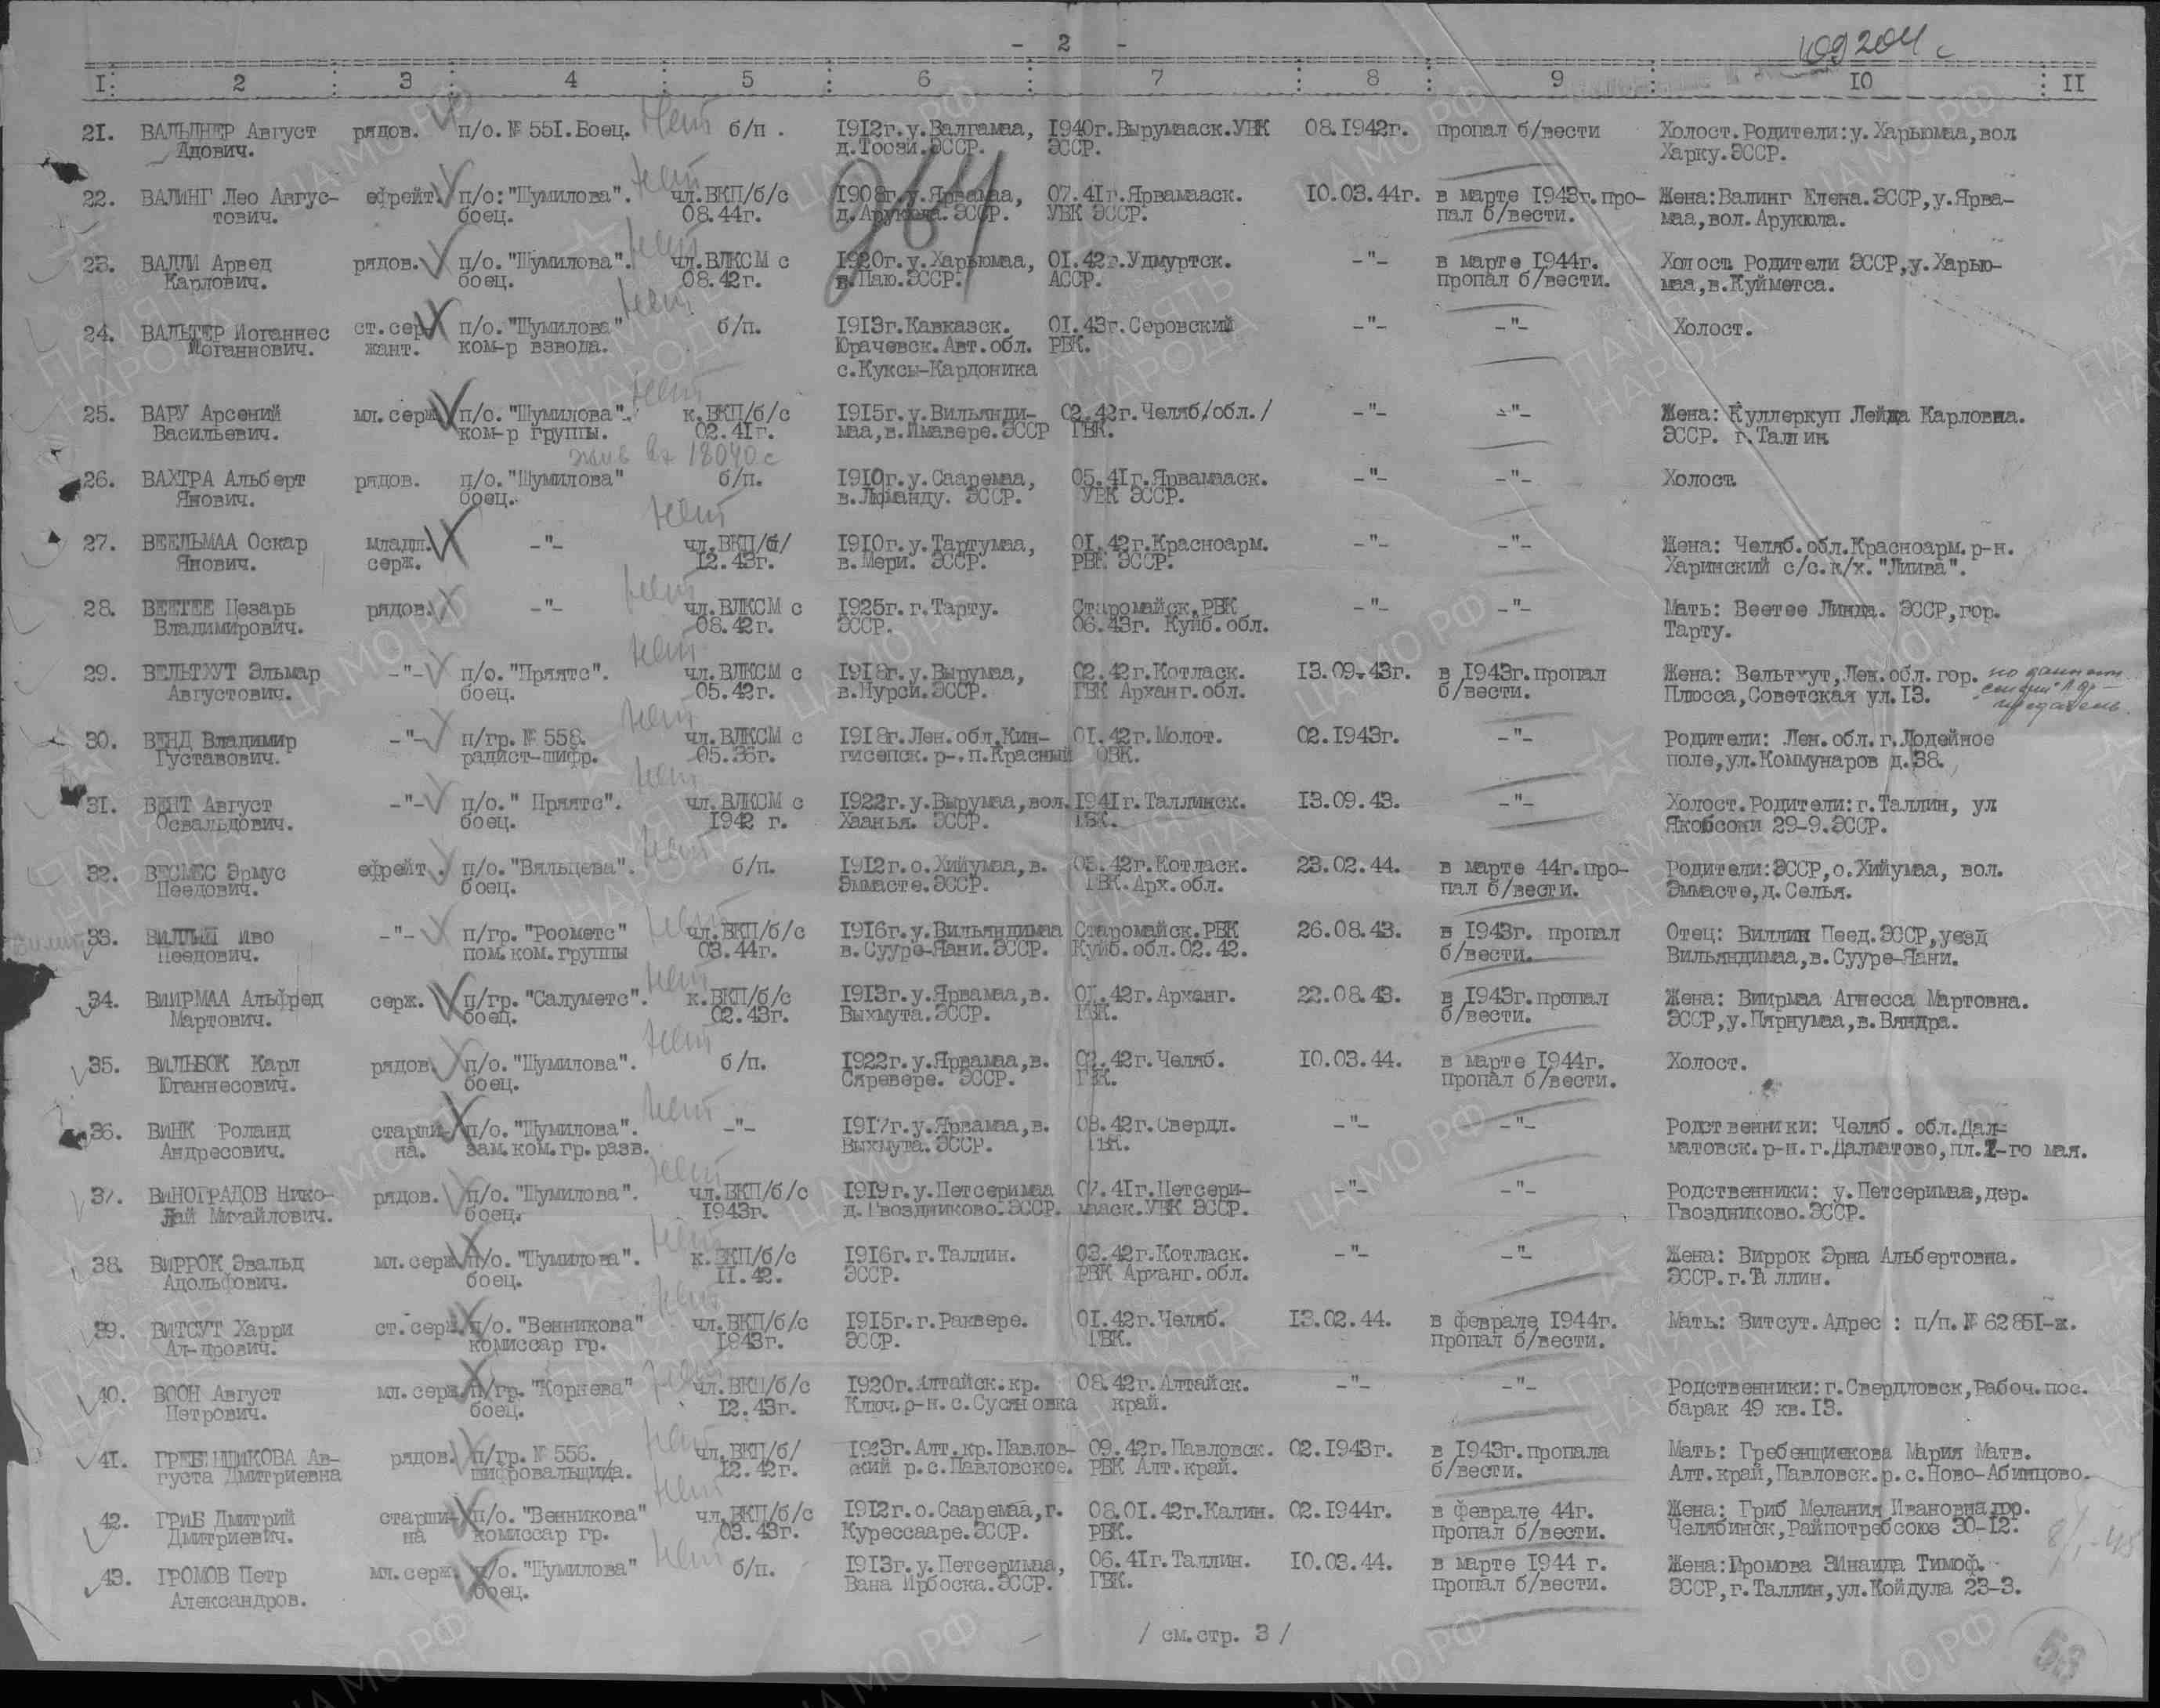 - 2 -
109204 с
I : 2 : 3 : 4 : 5 : 6 : 7 : 8 : 9 : 10 : II
21. ВАЛЬДНЕР Август рядов. п/о. № 551. Боец. нет б/п . 1912г.у.Валгамаа, 1940г.Вырумааск.УВК 08.1942г. пропал б/вести Холост.Родители:у.Харьюмаа,вол
Адович. д.Тоози.ЭССР. ЭССР. Харку.ЭССР.
22. ВАЛИНГ Лео Авгус- ефрейт. п/о:"Шумилова". нет чл.ВКП/б/с 1908г.у.Ярвамаа, 07.41г.Ярвамааск. 10.03.44г. в марте 1943г.про- Жена:Валинг Елена.ЭССР,у.Ярва-
тович. боец. 08.44г. д.Арукюла.ЭССР. УВК ЭССР. пал б/вести. маа,вол.Арукюла.
23. ВАЛЛИ Арвед рядов. п/о."Шумилова". нет чл.ВЛКСМ с 1920г.у.Харьюмаа, 01.42г.Удмуртск. -"- в марте 1944г. Холост. Родители ЭССР,у.Харью-
Карлович. боец. 08.42г. в.Паю.ЭССР. АССР. пропал б/вести. маа,в.Куйметса.
24. ВАЛЬТЕР Иоганнес ст.сер- п/о."Шумилова" нет б/п. 1913г.Кавказск. 01.43г.Серовский -"- -"- Холост.
Иоганнович. жант. ком-р взвода. Юрачевск.Авт.обл. РВК.
с.Куксы-Кардоника
25. ВАРУ Арсений мл.серж. п/о."Шумилова". нет к.ВКП/б/с 1915г.у.Вильянди- 02.42г.Челяб/обл./ -"- -"- Жена: Куллеркуп Лейда Карловна.
Васильевич. ком-р группы. 02.41г. маа,в.Имавере.ЭССР ГВК. ЭССР. г.Таллин.
жив вх 18040с
26. ВАХТРА Альберт рядов. п/о."Шумилова" б/п. 1910г.у.Сааремаа, 05.41г.Ярвамааск. -"- -"- Холост.
Янович. боец. в.Люманду. ЭССР. УВК ЭССР.
27. ВЕЕЛЬМАА Оскар младш. -"- нет чл.ВКП/б/ 1910г.у.Тартумаа, 01.42г.Красноарм. -"- -"- Жена: Челяб.обл.Красноарм.р-н.
Янович. серж. 12.43г. в.Мери. ЭССР. РВК ЭССР. Харинский с/с.к/х."Лиива".
28. ВЕЕТЕЕ Цезарь рядов. -"- нет чл.ВЛКСМ с 1925г.г.Тарту. Старомайск.РВК -"- -"- Мать: Веетее Линда. ЭССР,гор.
Владимирович. 08.42г. ЭССР. 06.43г. Куйб.обл. Тарту.
29. ВЕЛЬТХУТ Эльмар -"- п/о."Пряятс". нет чл.ВЛКСМ с 1918г.у.Вырумаа, 02.42г.Котласк. 13.09.43г. в 1943г.пропал Жена: Вельтхут,Лен.обл.гор. по данным
Августович. боец. 05.42г. в.Нурси.ЭССР. ГВК Арханг.обл. б/вести. Плюсса,Советская ул.13. предатель.
30. ВЕНД Владимир -"- п/гр.№ 558. нет чл.ВЛКСМ с 1918г.Лен.обл.Кин- 01.42г.Молот. 02.1943г. -"- Родители: Лен.обл.г.Лодейное
Густавович. радист-шифр. 05.36г. гисепск.р-.п.Красный ОВК. поле,ул.Коммунаров д.38.
31. ВЕНТ Август -"- п/о." Пряятс". нет чл.ВЛКСМ с 1922г.у.Вырумаа,вол. 1941г.Таллинск. 13.09.43. -"- Холост.Родители:г.Таллин, ул
Освальдович. боец. 1942 г. Хаанья. ЭССР. ГВК. Якобсони 29-9.ЭССР.
32. ВЕСМЕС Эрмус ефрейт. п/о."Вяльцева". нет б/п. 1912г.о.Хийумаа,в. 03.42г.Котласк. 23.02.44. в марте 44г.про- Родители:ЭССР,о.Хийумаа, вол.
Пеедович. боец. Эммасте.ЭССР. ГВК.Арх.обл. пал б/вести. Эммасте,д.Селья.
33. ВИЛЛЫП Иво -"- п/гр."Роометс" нет чл.ВКП/б/с 1916г.у.Вильяндимаа Старомайск.РВК 26.08.43. в 1943г. пропал Отец: Виллин Пеед.ЭССР,уезд
Пеедович. пом.ком.группы 03.44г. в.Сууре-Яани.ЭССР. Куйб.обл.02.42. б/вести. Вильяндимаа,в.Сууре-Яани.
34. ВИИРМАА Альфред серж. п/гр."Салуметс". нет к.ВКП/б/с 1913г.у.Ярвамаа,в. 01.42г.Арханг. 22.08.43. в 1943г.пропал Жена: Виирмаа Агнесса Мартовна.
Мартович. боец. 02.43г. Выхмута.ЭССР. ГВК. б/вести. ЭССР,у.Пярнумаа,в.Вяндра.
35. ВИЛЬБОК Карл рядов. п/о."Шумилова". нет б/п. 1922г.у.Ярвамаа,в. 02.42г.Челяб. 10.03.44. в марте 1944г. Холост.
Юганнесович. боец. Сяревере. ЭССР. ГВК. пропал б/вести.
36. ВИНК Роланд старши- п/о."Шумилова". нет -"- 1917г.у.Ярвамаа,в. 03.42г.Свердл. -"- -"- Родственники: Челяб. обл.Дал-
Андресович. на. зам.ком.гр.разв. Выхмута.ЭССР. ГВК. матовск.р-н.г.Далматово,пл.I-го мая.
37. ВИНОГРАДОВ Нико- рядов. п/о."Шумилова". нет чл.ВКП/б/с 1919г.у.Петсеримаа 07.41г.Петсери- -"- -"- Родственники: у.Петсеримаа,дер.
лай Михайлович. боец. 1943г. д.Гвоздниково.ЭССР. мааск.УВК ЭССР. Гвоздниково.ЭССР.
38. ВИРРОК Эвальд мл.серж. п/о."Шумилова". нет к.ВКП/б/с 1916г.г.Таллин. 03.42г.Котласк. -"- -"- Жена: Виррок Эрна Альбертовна.
Адольфович. боец. 11.42. ЭССР. РВК Арханг.обл. ЭССР.г.Таллин.
39. ВИТСУТ Харри ст.серж. п/о."Венникова" нет чл.ВКП/б/с 1915г.г.Раквере. 01.42г.Челяб. 13.02.44. в феврале 1944г. Мать: Витсут.Адрес : п/п.№ 62851-ж.
Ал-дрович. комиссар гр. 1943г. ЭССР. ГВК. пропал б/вести.
40. ВООН Август мл.серж. п/гр."Корнева" нет чл.ВКП/б/с 1920г.Алтайск.кр. 08.42г.Алтайск. -"- -"- Родственники:г.Свердловск,Рабоч.пос.
Петрович. боец. 12.43г. Ключ.р-н.с.Сусяновка край. барак 49 кв.13.
41. ГРЕБЕНЩИКОВА Ав- рядов. п/гр.№ 556. нет чл.ВКП/б/ 1923г.Алт.кр.Павлов- 09.42г.Павловск. 02.1943г. в 1943г.пропала Мать: Гребенщиекова Мария Матв.
густа Дмитриевна шифровальщица. 12.42г. ский р.с.Павловское. РВК Алт.край. б/вести. Алт.край,Павловск.р.с.Ново-Абинцово.
42. ГРИБ Дмитрий старши- п/о."Венникова" нет чл.ВКП/б/с 1912г.о.Сааремаа,г. 08.01.42г.Калин. 02.1944г. в феврале 44г. Жена: Гриб Мелания Ивановна,гор.
Дмитриевич. на комиссар гр. 03.43г. Курессааре.ЭССР. РВК. пропал б/вести. Челябинск,Райпотребсоюз 30-12.
43. ГРОМОВ Петр мл.серж. п/о."Шумилова" нет б/п. 1913г.у.Петсеримаа, 06.41г.Таллин. 10.03.44. в марте 1944 г. Жена:Громова Зинаида Тимоф.
Александров. боец. Вана Ирбоска.ЭССР. ГВК. пропал б/вести. ЭССР,г.Таллин,ул.Койдула 23-3.
/ см.стр. 3 /
53